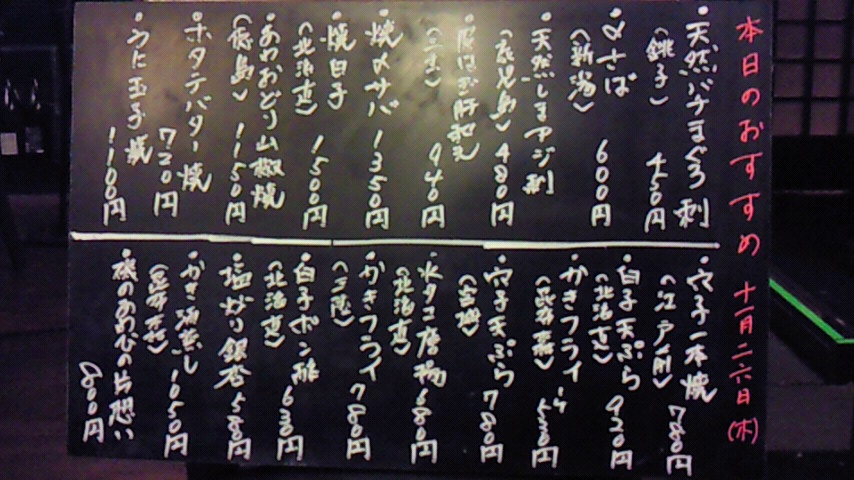 本日のおすすめ 十一月二六日(木)
・天然バチまぐろ刺
(銚子) 450円
・〆さば
(新潟) 600円
・天然しまアジ刺
(鹿児島) 480円
肝和え
940円
・焼〆サバ 1350円
・焼白子
(北海道) 1500円
・あわおどり山椒焼
(徳島) 1150円
・ホタテバター焼
720円
・うに玉子焼
1100円
・穴子一本焼
(江戸前) 780円
・白子天ぷら
(北海道) 920円
・かきフライ
530円
・穴子天ぷら
780円
・水タコ唐揚
(北海道) 680円
・かきフライ
780円
・白子ポン酢
(北海道) 630円
・塩炒り銀杏 580円
・かき酒蒸し
1050円
・磯のあわびの片想い
800円